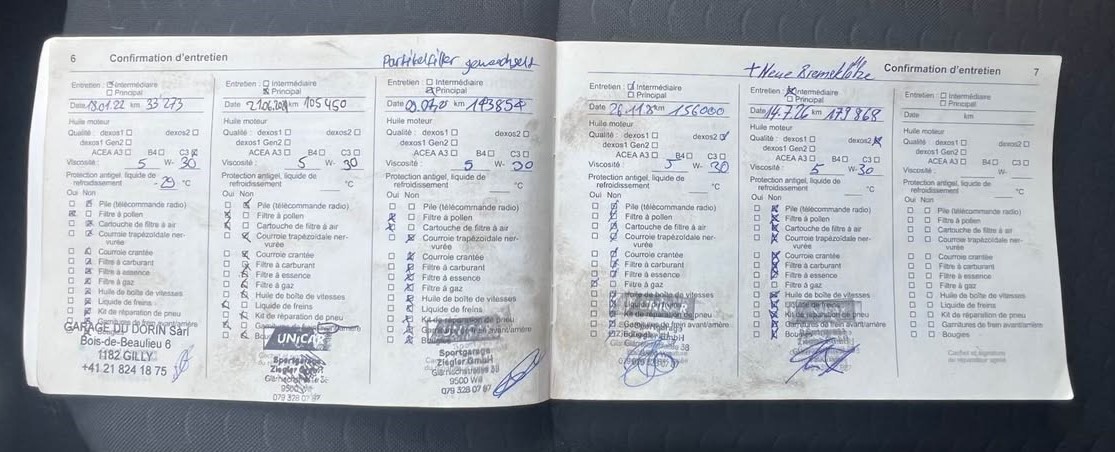 6 Confirmation d'entretien
Partikelfilter gewechselt
Entretien : ☐ Intermédiaire
☐ Principal
Date 18.01.22 km 33'273
Huile moteur
Qualité : dexos1 ☐ dexos2 ☐
dexos1 Gen2 ☐
ACEA A3 ☐ B4 ☐ C3 ☒
Viscosité : 5 W- 30
Protection antigel, liquide de
refroidissement - 29 °C
Oui Non
Pile (télécommande radio)
Filtre à pollen
Cartouche de filtre à air
Courroie trapézoïdale ner-
vurée
Courroie crantée
Filtre à carburant
Filtre à essence
Filtre à gaz
Huile de boîte de vitesses
Liquide de freins
Kit de réparation de pneu
GARAGE DU DORIN Sàrl
Bois-de-Beaulieu 6
1182 GILLY
+41 21 824 18 75
Entretien : ☐ Intermédiaire
☒ Principal
Date km 105 450
Huile moteur
Qualité : dexos1 ☐ dexos2 ☐
dexos1 Gen2 ☐
ACEA A3 ☐ B4 ☐ C3 ☐
Viscosité : 5 W- 30
Protection antigel, liquide de
refroidissement °C
Oui Non
Pile (télécommande radio)
Filtre à pollen
Cartouche de filtre à air
Courroie trapézoïdale ner-
vurée
Courroie crantée
Filtre à carburant
Filtre à essence
Filtre à gaz
Huile de boîte de vitesses
Liquide de freins
Kit de réparation de pneu
UNiCAR
Sportgarage
Ziegler GmbH
079 328 07 87
Entretien : ☐ Intermédiaire
☒ Principal
Date km 143854
Huile moteur
Qualité : dexos1 ☐ dexos2 ☐
dexos1 Gen2 ☐
ACEA A3 ☐ B4 ☐ C3 ☐
Viscosité : 5 W- 30
Protection antigel, liquide de
refroidissement °C
Oui Non
Pile (télécommande radio)
Filtre à pollen
Cartouche de filtre à air
Courroie trapézoïdale ner-
vurée
Courroie crantée
Filtre à carburant
Filtre à essence
Filtre à gaz
Huile de boîte de vitesses
Liquide de freins
Kit de réparation de pneu
UNiCAR
Sportgarage
Ziegler GmbH
Glärnischstrasse 38
9500 Wil
079 328 07 87
+ Neue Bremsklötze
Confirmation d'entretien 7
Entretien : ☐ Intermédiaire
☐ Principal
Date 26.11.8 km 156000
Huile moteur
Qualité : dexos1 ☐ dexos2 ☒
dexos1 Gen2 ☐
ACEA A3 ☐ B4 ☐ C3 ☐
Viscosité : 5 W- 30
Protection antigel, liquide de
refroidissement °C
Oui Non
Pile (télécommande radio)
Filtre à pollen
Cartouche de filtre à air
Courroie trapézoïdale ner-
vurée
Courroie crantée
Filtre à carburant
Filtre à essence
Filtre à gaz
Huile de boîte de vitesses
Garnitures de frein avant/arrière
Entretien : ☒ Intermédiaire
☐ Principal
Date 14.7.26 km 179 868
Huile moteur
Qualité : dexos1 ☐ dexos2 ☒
dexos1 Gen2 ☐
ACEA A3 ☐ B4 ☐ C3 ☐
Viscosité : 5 W- 30
Protection antigel, liquide de
refroidissement °C
Oui Non
Pile (télécommande radio)
Filtre à pollen
Cartouche de filtre à air
Courroie trapézoïdale ner-
vurée
Courroie crantée
Filtre à carburant
Filtre à essence
Filtre à gaz
Huile de boîte de vitesses
Liquide de freins
Kit de réparation de pneu
Garnitures de frein avant/arrière
Bougies
Entretien : ☐ Intermédiaire
☐ Principal
Date km
Huile moteur
Qualité : dexos1 ☐ dexos2 ☐
dexos1 Gen2 ☐
ACEA A3 ☐ B4 ☐ C3 ☐
Viscosité : W-
Protection antigel, liquide de
refroidissement °C
Oui Non
☐ ☐ Pile (télécommande radio)
☐ ☐ Filtre à pollen
☐ ☐ Cartouche de filtre à air
☐ ☐ Courroie trapézoïdale ner-
vurée
☐ ☐ Courroie crantée
☐ ☐ Filtre à carburant
☐ ☐ Filtre à essence
☐ ☐ Filtre à gaz
☐ ☐ Huile de boîte de vitesses
☐ ☐ Liquide de freins
☐ ☐ Kit de réparation de pneu
☐ ☐ Garnitures de frein avant/arrière
☐ ☐ Bougies
Cachet et signature
du réparateur agréé